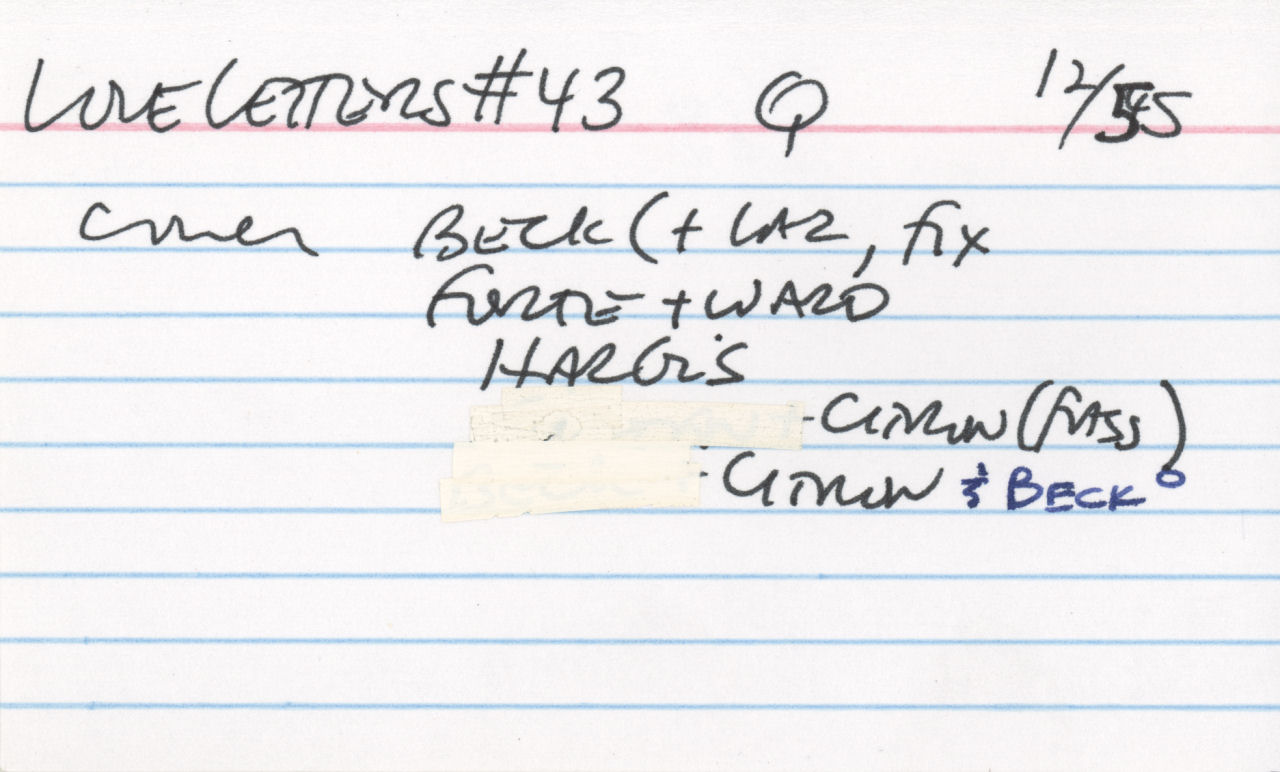 LOVE LETTERS #43 Q 12/55
Cover BECK (+ LAZ, fix
FORTE + WARD
HARGIS
- CITRON (FRASS)
- CITRON & BECK